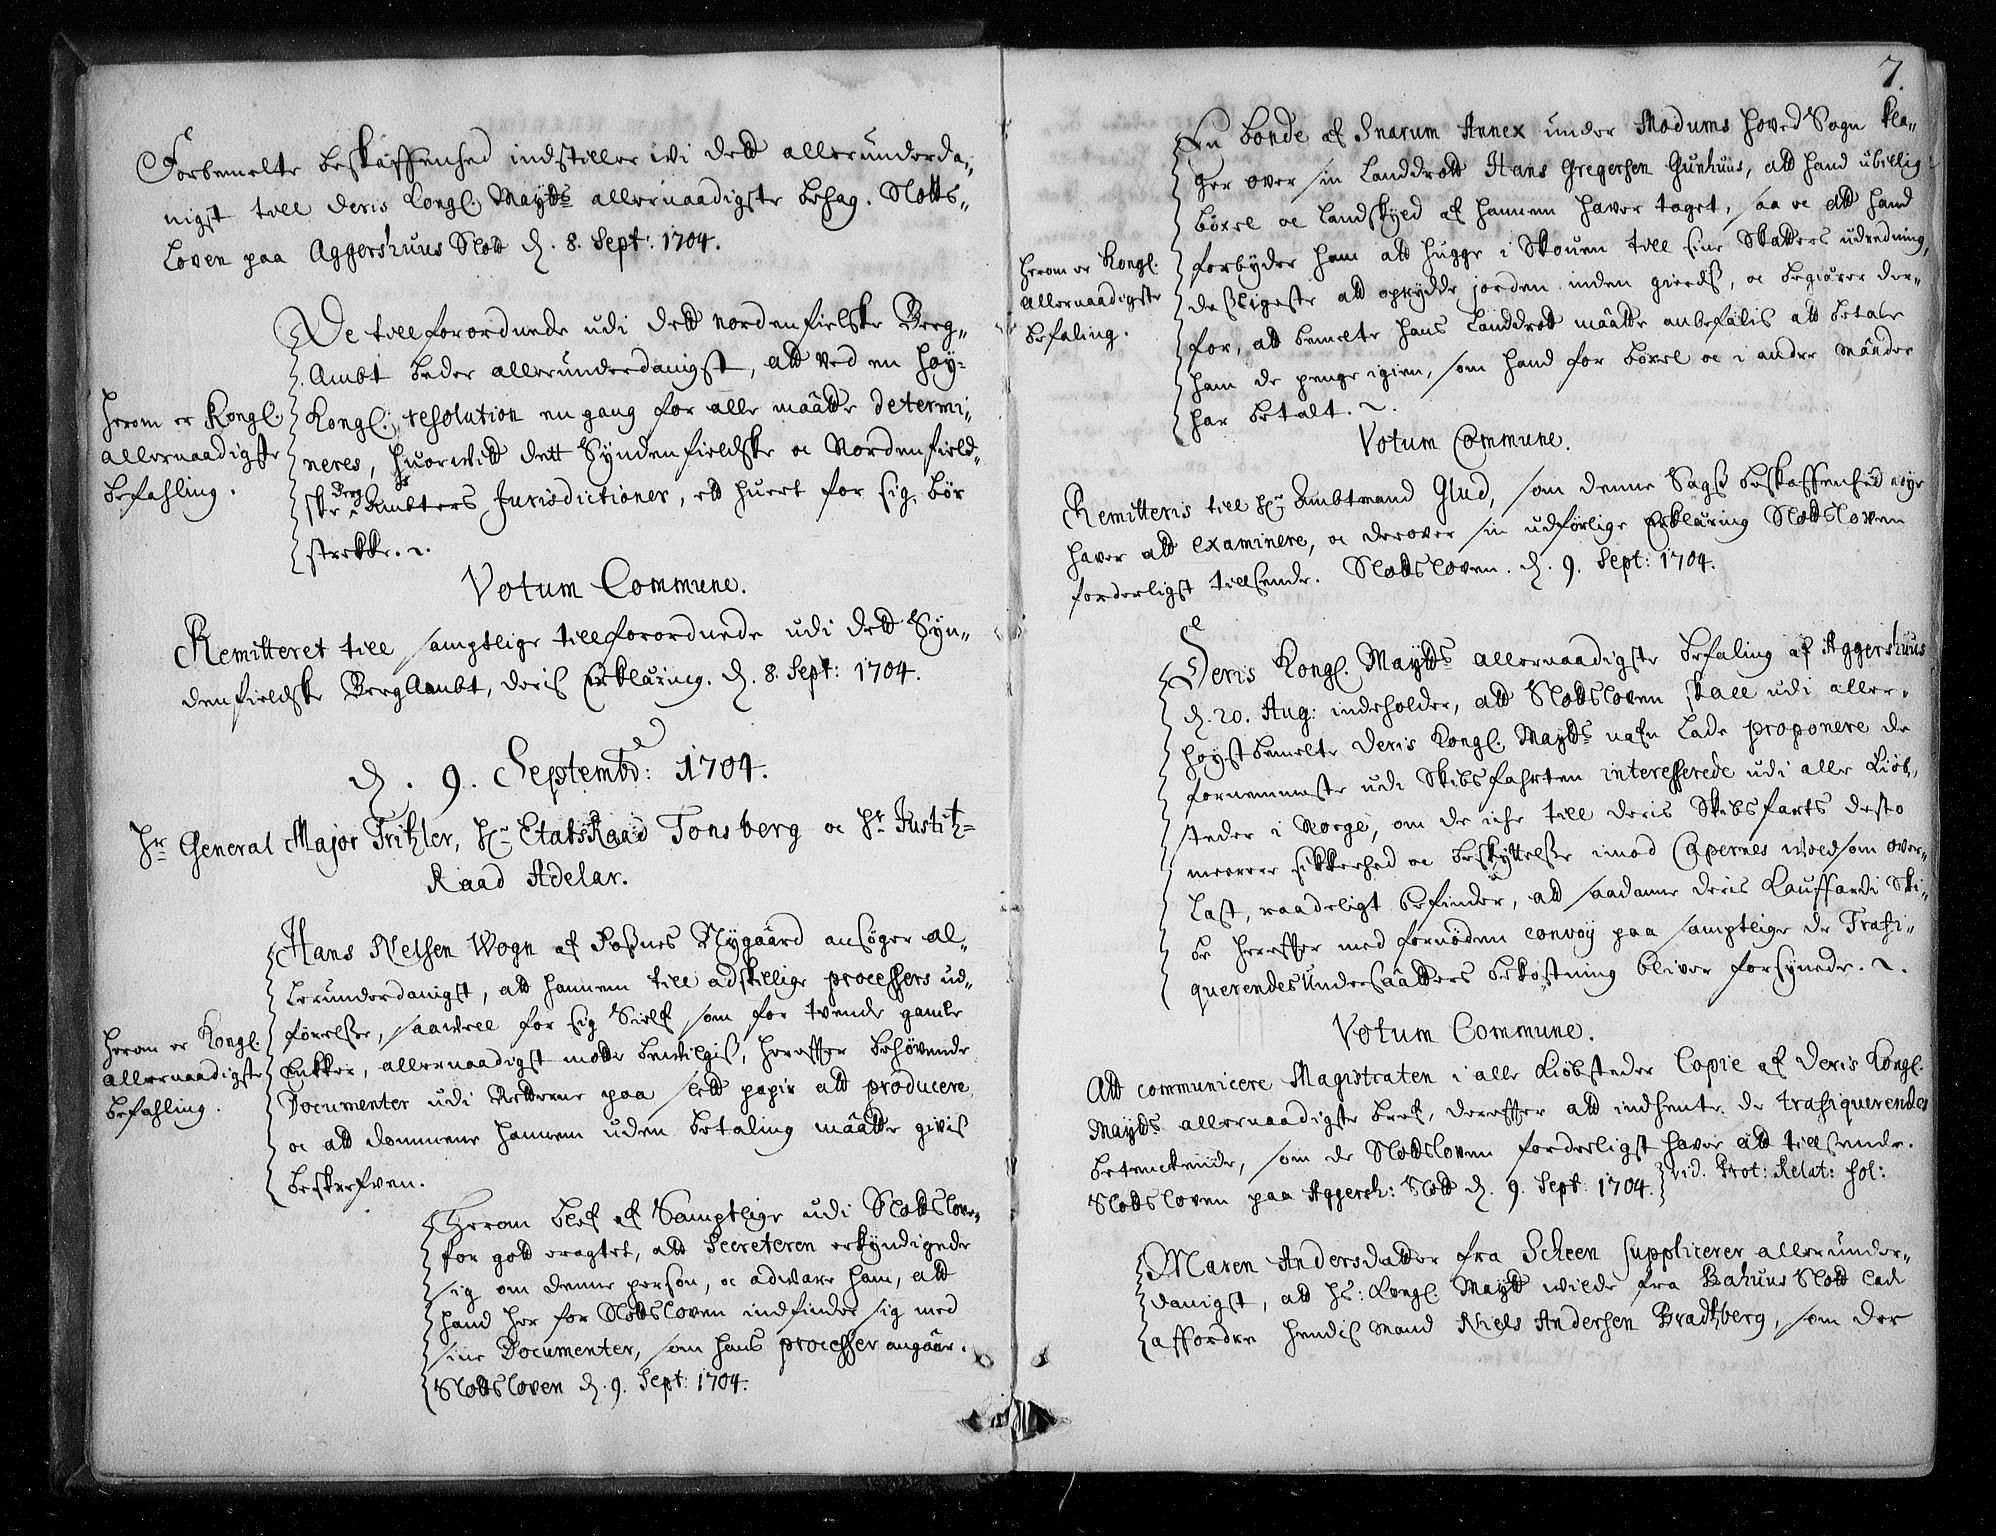 Forbemelte beskaffenhed indstiller wi dett allerunderda-
nigst till Deris Kongl. Mayts allernaadigste behag. Slotts-
loven paa Aggershuus Slott d. 8. Sept: 1704.
De tillforordnede udi dett nordenfielske Berg-
Ambt beder allerunderdanigst, att ved en høy-
Herom er Kongl.
allernaadigste
befahling.
Kongl: resolution en gang for alle maatte determi-
neres, huorwitt dett Syndenfieldske oc Nordenfield-
ske Berg Ambters Jurisdictioner, ett huert for sig, bør
strekke. ~.
Votum Commune.
Remitteret till samptlige tillforordnede udi dett Syn-
denfieldske BergAmbt, deris Erklæring. d. 8. Sept: 1704.
d. 9. Septembr: 1704.
Hr General Major Tritzler, Hr EtatsRaad Tonsberg oc Hr Justitz-
Raad Adelar.
Hans Nelsen Wogn af Foßnes Nygaard ansøger al-
lerunderdanigst, att hannem till adskillige processers ud-
førelse, saawell for sig Sielf som for tvende gamle
Herom er Kongl.
allernaadigste
befahling.
Enkker, allernaadigst motte bewilgis, herefter behøvende
Documenter udi Retterne paa slett papir att producere
oc att dommene hannem uden betaling maatte givis
beskrefven.
Herom blef af Samptlige udi Slottslove-
for gott eragtet, att Secreteren erkyndigede
sig om denne person, oc adware ham, att
hand her for Slottsloven indfinder sig med
sine Documenter, som hans processer angaar.
Slottsloven d. 9. Sept: 1704.
7.
En bonde af Snarum Annex under Modums Hoved Sogn kla-
ger over sin Landdrott Hans Gregersen Gunhuus, att hand ubillig
bøxel oc Landskyld af hannem haver taget, saa oc att hand
Herom er Kongl.
allernaadigste
befaling.
forbyder ham att hugge i Skouen till sine Skatters udredning,
desligeste att oprydde jorden inden gierdß, oc begiærer der-
for, att bemelte hans Landdrott maatte anbefalis att betale
ham de penge igien, som hand for bøxel oc i andre maader
har betalt. ~.
Votum Commune.
Remitteris till Hr Ambtmand Glud, som denne Sags beskaffenhed nøye
haver att examinere, oc derover sin udførlige Erklæring Slottsloven
forderligst tillsende. Slottsloven. d. 9. Sept: 1704.
Deris Kongl. Mayts allernaadigste befaling af Aggershuus
d. 20. Aug: indeholder, att Slottsloven skall udi aller-
høystbemelte Deris Kongl. Mayts nafn lade proponere de
fornemmeste udi Skibsfahrten interesserede udi alle kiøb-
steder i Norge, om de iche till deris Skibsfarts desto
meerere sikkerhed oc beskyttelse imod Capernes woldsom over-
last, raadeligt befinder, att saadanne deris kauffardi Ski-
be herefter med fornøden convoy paa samptlige de Trafi-
querendes Undersaatters bekostning bliver forsynede. ~.
Votum Commune.
Att communicere Magistraten i alle kiøbsteder Copie af Deris Kongl.
Mayts allernaadigste bref, derefter att indhente de trafiquerendes
betenckende, som de Slottsloven forderligst haver att tillsende.
Slottsloven paa Aggersh: Slott d. 9. Sept: 1704. vid. Prot: Relat: fol:
Maren Andersdatter fra Scheen suppliceret allerunder-
danigst, att Hs: Kongl. Maytt wilde fra Bahuus Slott lade
affordre hendis mand Niels Andersen Bradtzberg, som der